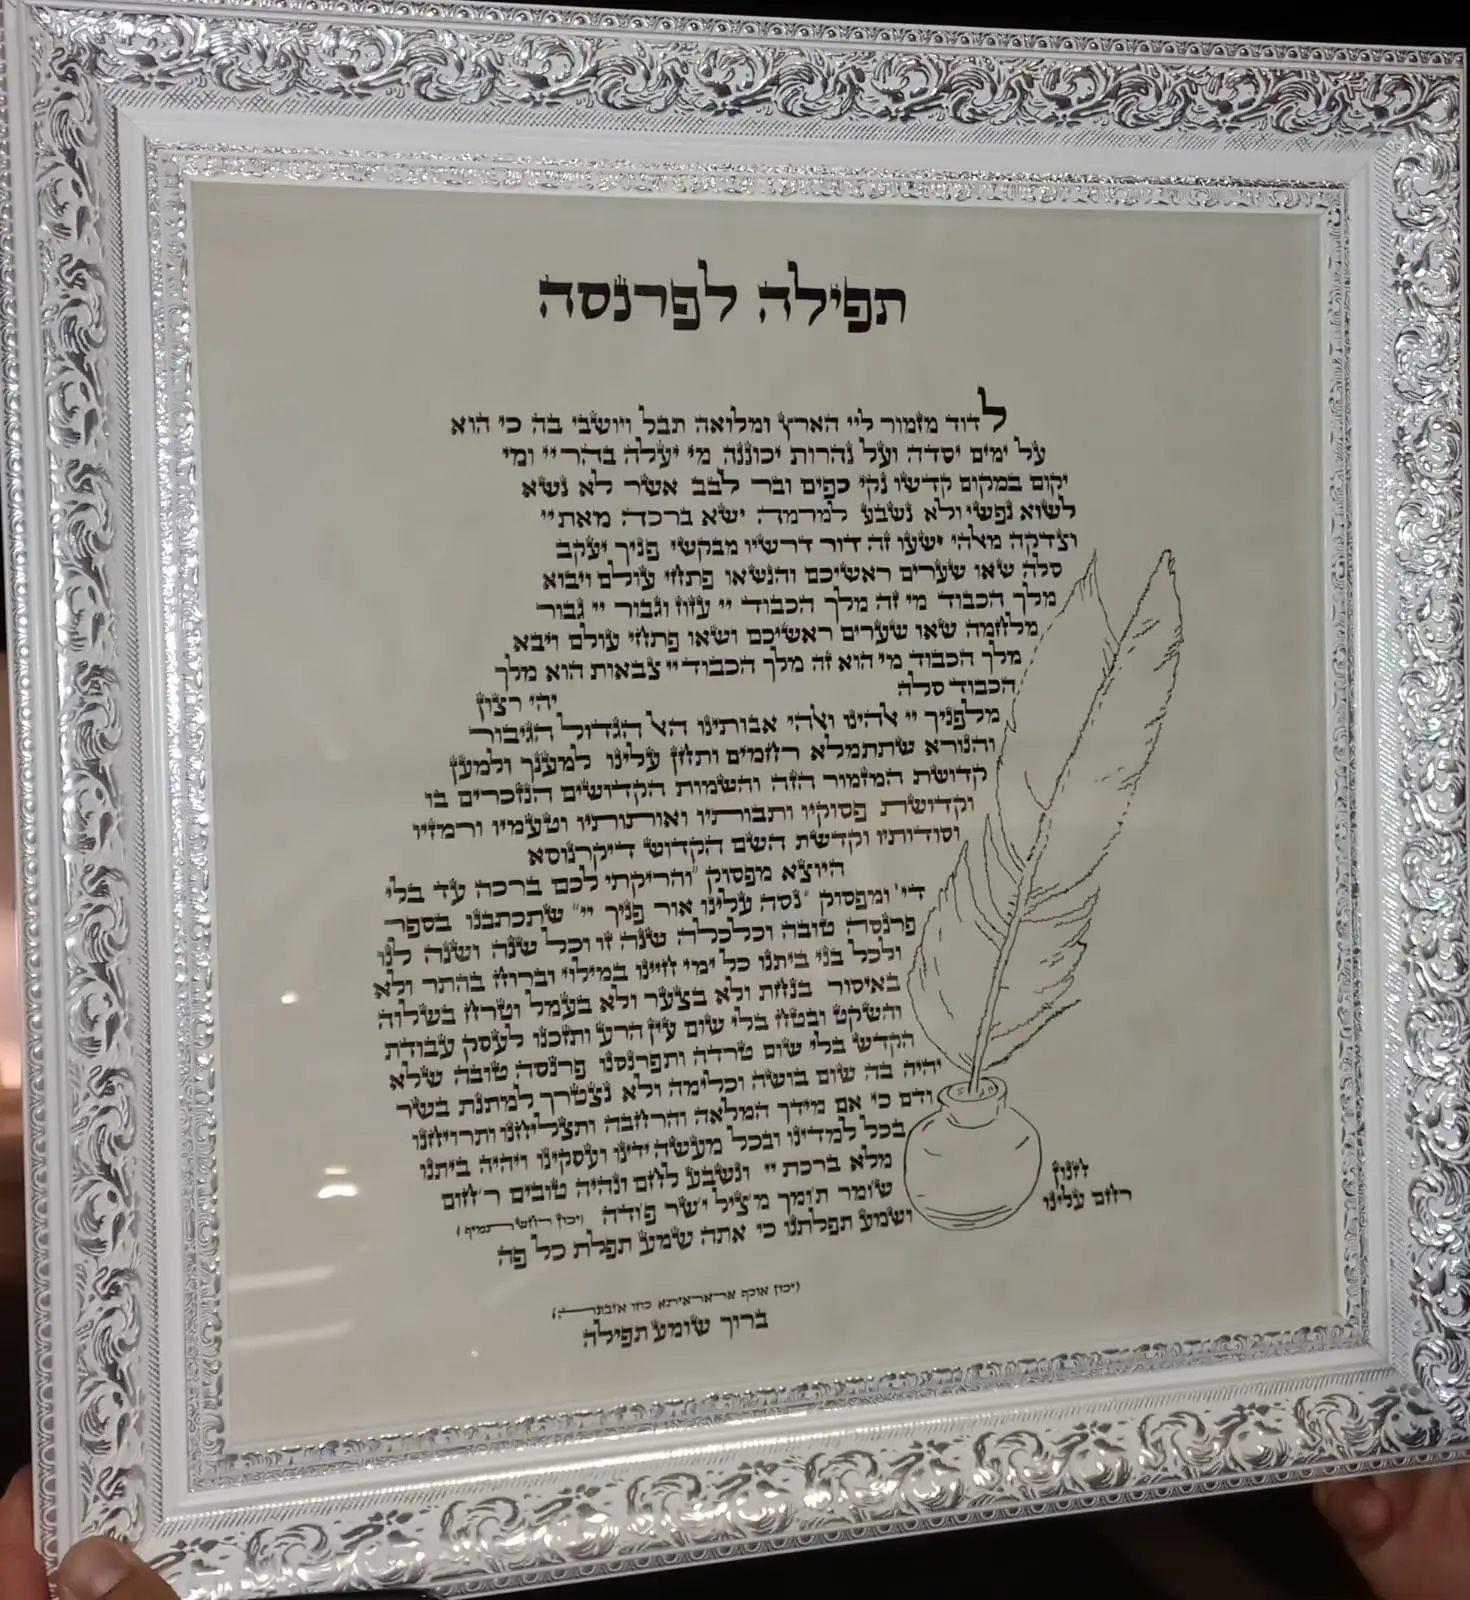 תפילה לפרנסה
לדוד מזמור ליי הארץ ומלואה תבל ויושבי בה כי הוא
על ימים יסדה ועל נהרות יכוננה מי יעלה בהר יי ומי
יקום במקום קדשו נקי כפים ובר לבב אשר לא נשא
לשוא נפשי ולא נשבע למרמה ישא ברכה מאת יי
וצדקה מאלהי ישעו זה דור דרשיו מבקשי פניך יעקב
סלה שאו שערים ראשיכם והנשאו פתחי עולם ויבוא
מלך הכבוד מי זה מלך הכבוד יי עזוז וגבור יי גבור
מלחמה שאו שערים ראשיכם ושאו פתחי עולם ויבא
מלך הכבוד מי הוא זה מלך הכבוד יי צבאות הוא מלך
הכבוד סלה יהי רצון
מלפניך יי אלהינו ואלהי אבותינו האל הגדול הגיבור
והנורא שתתמלא רחמים ותחון עלינו למענך ולמען
קדושת המזמור הזה והשמות הקדושים הנזכרים בו
וקדושת פסוקיו ותבותיו ואותותיו וטעמיו ורמזיו
וסודותיו וקדשת השם הקדוש דיקרנוסא
היוצא מפסוק "והריקתי לכם ברכה עד בלי
די" ומפסוק "נסה עלינו אור פניך יי" שתכתבנו בספר
פרנסה טובה וכלכלה שנה זו וכל שנה ושנה לנו
ולכל בני ביתנו כל ימי חיינו במילוי וברוח בהתר ולא
באיסור בנחת ולא בצער ולא בעמל וטרח בשלוה
והשקט ובטח בלי שום עין הרע ותזכנו לעסק עבודת
הקדש בלי שום טרדה ותפרנסנו פרנסה טובה שלא
יהיה בה שום בושה וכלימה ולא נצטרך למתנת בשר
ודם כי אם מידך המלאה והרחבה ותצליחנו ותרויחנו
בכל למדינו ובכל מעשה ידינו ועסקינו ויהיה ביתנו
מלא ברכת יי ונשבע לחם ונהיה טובים רחום
חנון
שומר תומך מציל ישר פודה (יכון
רחם עלינו
ושמע תפלתנו כי אתה שמע תפלת כל פה
(יכון
ברוך שומע תפילה